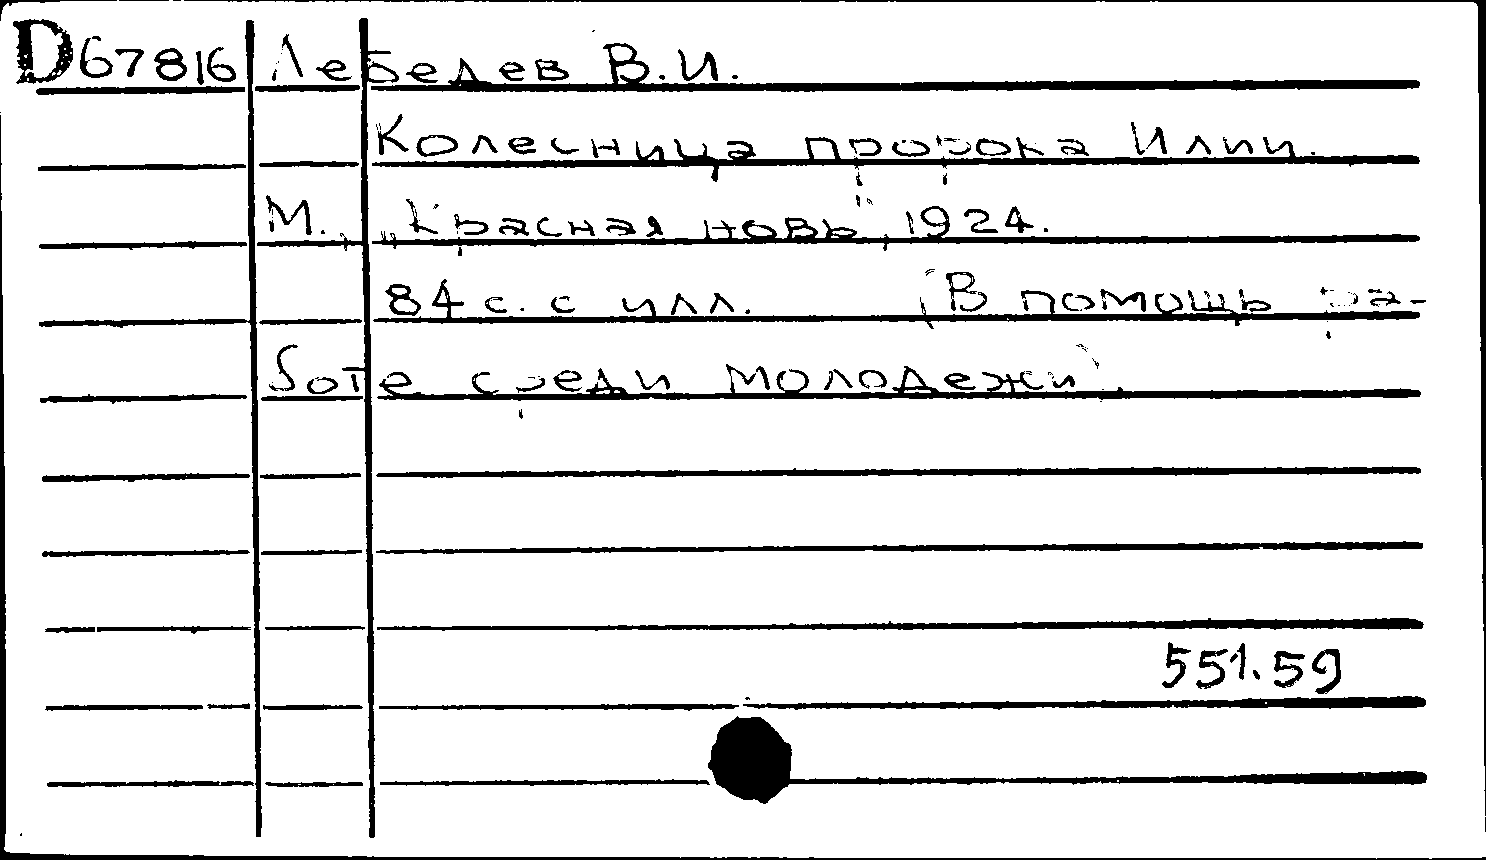 D67816 Лебедев В.И.
Колесница пророка Илии.
М., „Красная новь", 1924.
84 с. с илл. (В помощь ра-
боте среди молодежи).
551.59